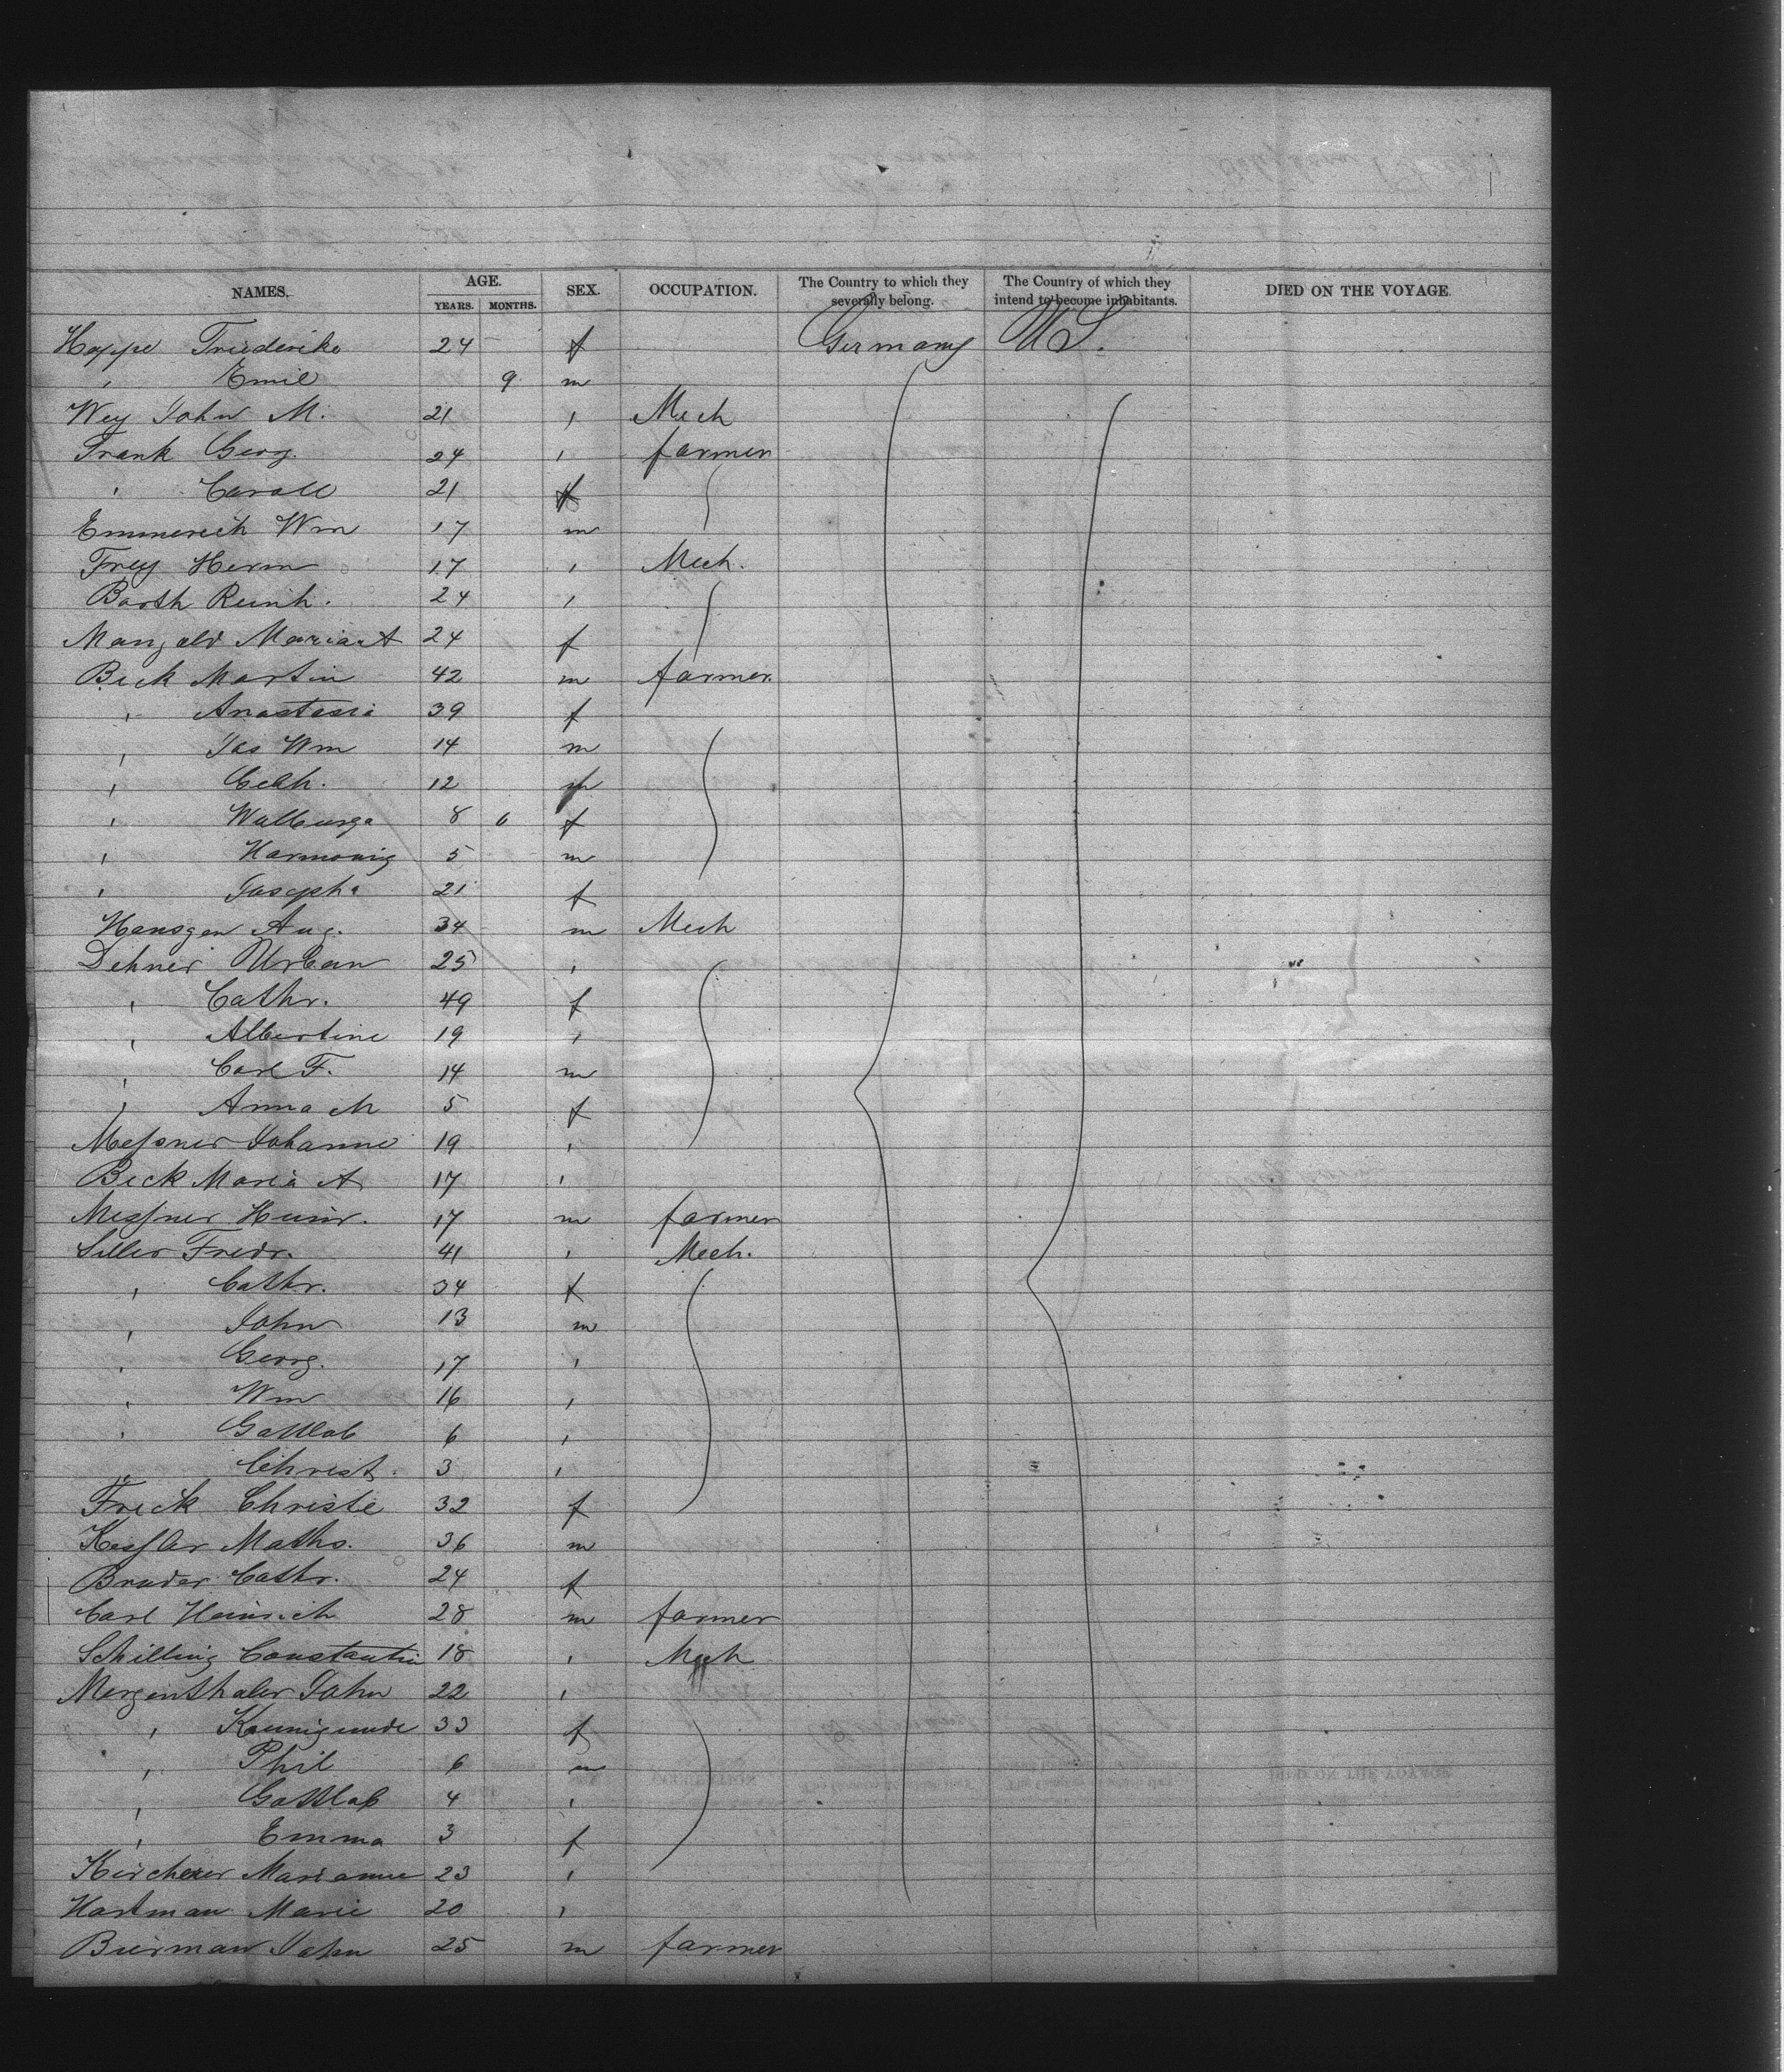 NAMES. AGE. SEX. OCCUPATION. The Country to which they severally belong. The Country of which they intend to become inhabitants. DIED ON THE VOYAGE
YEARS. MONTHS.
Hoppe Friederike 24 f Germany U S.
" Emil 9 m
Wey John M. 21 " Mech
Frank Georg. 24 " farmer
" Caroll 21 f
Emmerich Wm 17 m
Frey Herm 17 " Mech.
Barth Reinh. 24 "
Mangold Maria A 24 f
Beck Martin 42 m farmer
" Anastasia 39 f
" Jas Wm 14 m
" 12 m
" Walburga 8 6 f
" 5 m
" Josepha 21 f
Hensgen Aug. 34 m Mech
Dehner Urban 25 "
" Cathr. 49 f
" Albertine 19 "
" Carl F. 14 m
" Anna M 5 f
Messner Johanne 19 "
Beck Maria A 17 "
Messner Heinr. 17 m farmer
Siller Fredr. 41 " Mech.
" Cathr. 34 f
" John 13 m
" Georg. 17 "
" Wm 16 "
" Gottlob 6 "
" Christ. 3 "
Frick Christie 32 f
Kessler Maths. 36 m
Bruder Cathr. 24 f
Carl Heinrich 28 m farmer
Schilling Constantin 18 " Mech
Mergenthaler John 22 "
" Kunnigunde 33 f
" Phil 6 m
" Gottlob 4 "
" Emma 3 f
Kircherer Marianne 23 "
Hartman Marie 20 "
Bierman John 25 m farmer